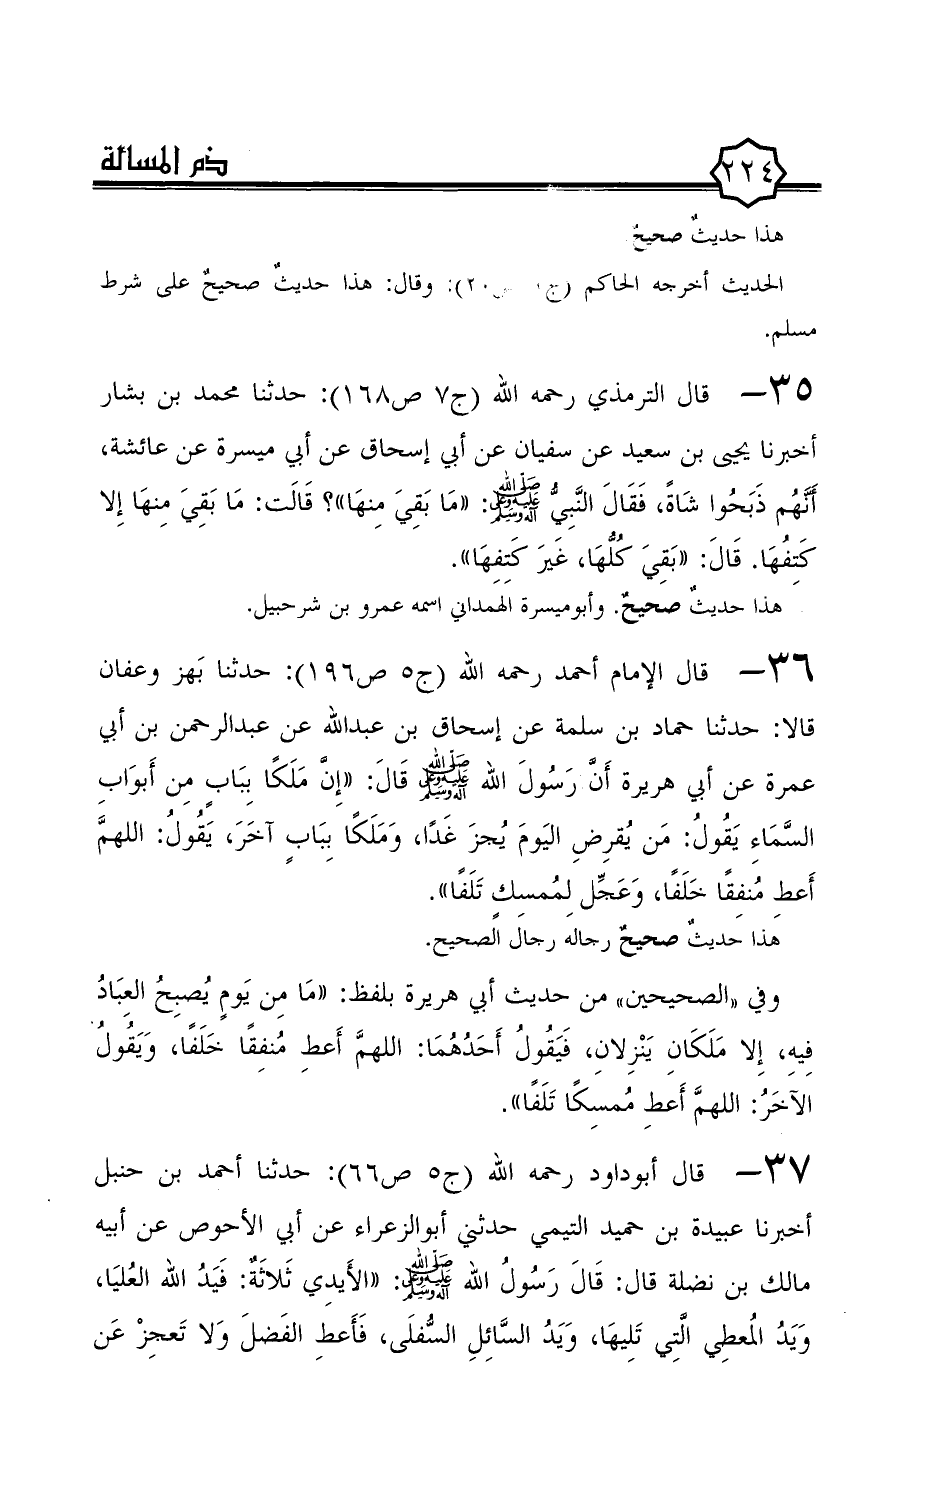 ٢٢٤ ذم المسألة
هذا حديثٌ صحيحٌ
الحديث أخرجه الحاكم (ج ص٢٠): وقال: هذا حديثٌ صحيحٌ على شرط
مسلم.
٣٥– قال الترمذي رحمه الله (ج٧ ص١٦٨): حدثنا محمد بن بشار
أخبرنا يحيى بن سعيد عن سفيان عن أبي إسحاق عن أبي ميسرة عن عائشة،
أَنَّهُم ذَبَحُوا شَاةً، فَقَالَ النَّبِيُّ ﷺ: «مَا بَقِيَ مِنهَا»؟ قَالَت: مَا بَقِيَ مِنهَا إِلا
كَتِفُهَا. قَالَ: «بَقِيَ كُلُّهَا، غَيرَ كَتِفِهَا».
هذا حديثٌ صحيحٌ. وأبوميسرة الهمداني اسمه عمرو بن شرحبيل.
٣٦– قال الإمام أحمد رحمه الله (ج٥ ص١٩٦): حدثنا بَهز وعفان
قالا: حدثنا حماد بن سلمة عن إسحاق بن عبدالله عن عبدالرحمن بن أبي
عمرة عن أبي هريرة أَنَّ رَسُولَ الله ﷺ قَالَ: «إِنَّ مَلَكًا بِبَابٍ مِن أَبوَابِ
السَّمَاءِ يَقُولُ: مَن يُقرِضِ اليَومَ يُجزَ غَدًا، وَمَلَكًا بِبَابٍ آخَرَ، يَقُولُ: اللهمَّ
أَعطِ مُنفِقًا خَلَفًا، وَعَجِّل لِمُمسِكٍ تَلَفًا».
هذا حديثٌ صحيحٌ رجاله رجال الصحيح.
وفي «الصحيحين» من حديث أبي هريرة بلفظ: «مَا مِن يَومٍ يُصبِحُ العِبَادُ
فِيهِ، إِلا مَلَكَانِ يَنْزِلانِ، فَيَقُولُ أَحَدُهُمَا: اللهمَّ أَعطِ مُنفِقًا خَلَفًا، وَيَقُولُ
الآخَرُ: اللهمَّ أَعطِ مُمسِكًا تَلَفًا».
٣٧– قال أبوداود رحمه الله (ج٥ ص٦٦): حدثنا أحمد بن حنبل
أخبرنا عبيدة بن حميد التيمي حدثني أبوالزعراء عن أبي الأحوص عن أبيه
مالك بن نضلة قال: قَالَ رَسُولُ الله ﷺ: «الأَيدِي ثَلاثَةٌ: فَيَدُ الله العُليَا،
وَيَدُ المُعطِي الَّتِي تَلِيهَا، وَيَدُ السَّائِلِ السُّفلَى، فَأَعطِ الفَضلَ وَلا تَعجِزْ عَن